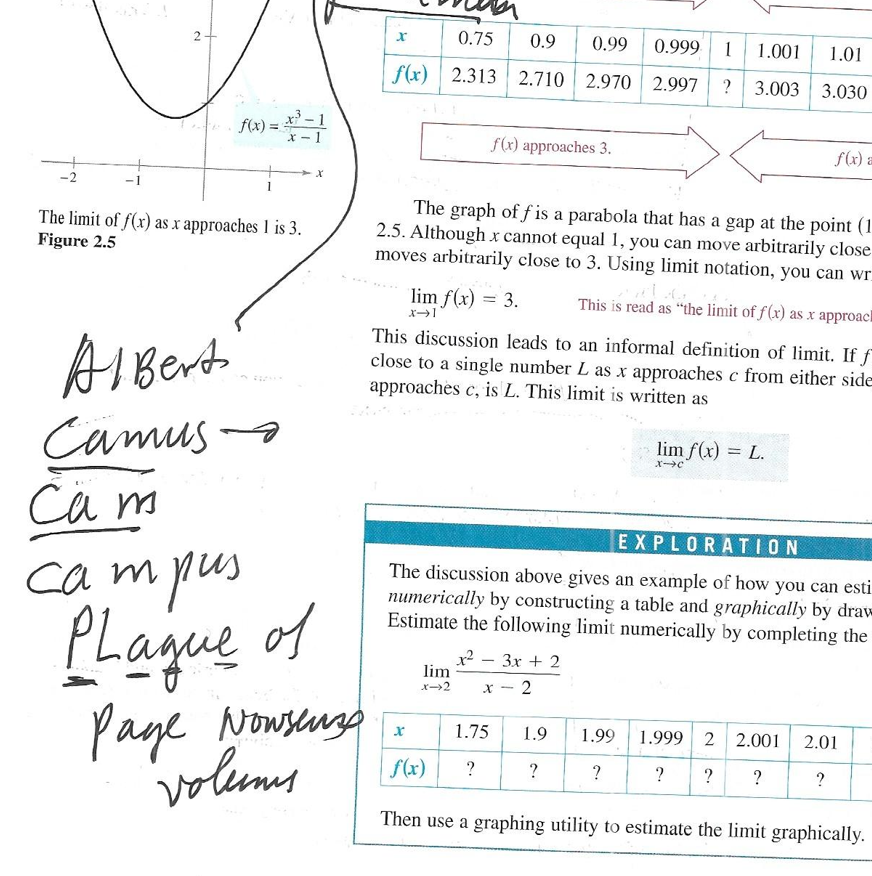 2
f(x) = x³ − 1 / x − 1
−2 −1 1 x
The limit of f(x) as x approaches 1 is 3.
Figure 2.5
Albert
Camus →
Cam
campus
PLague of
Page Nowsense
volums
x 0.75 0.9 0.99 0.999 1 1.001 1.01
f(x) 2.313 2.710 2.970 2.997 ? 3.003 3.030
f(x) approaches 3. f(x) a
The graph of f is a parabola that has a gap at the point (1
2.5. Although x cannot equal 1, you can move arbitrarily close
moves arbitrarily close to 3. Using limit notation, you can wr
lim x→1 f(x) = 3. This is read as “the limit of f(x) as x approac
This discussion leads to an informal definition of limit. If f
close to a single number L as x approaches c from either side
approaches c, is L. This limit is written as
lim x→c f(x) = L.
EXPLORATION
The discussion above gives an example of how you can esti
numerically by constructing a table and graphically by draw
Estimate the following limit numerically by completing the
lim x→2 x² − 3x + 2 / x − 2
x 1.75 1.9 1.99 1.999 2 2.001 2.01
f(x) ? ? ? ? ? ? ?
Then use a graphing utility to estimate the limit graphically.